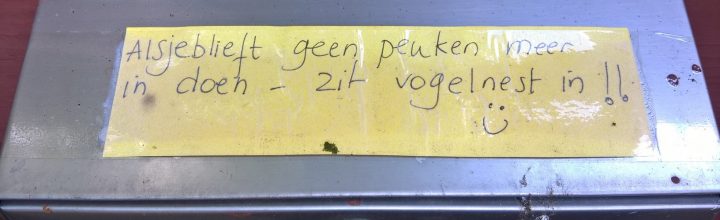 Alsjeblieft geen peuken meer
in doen - zit vogelnest in !!